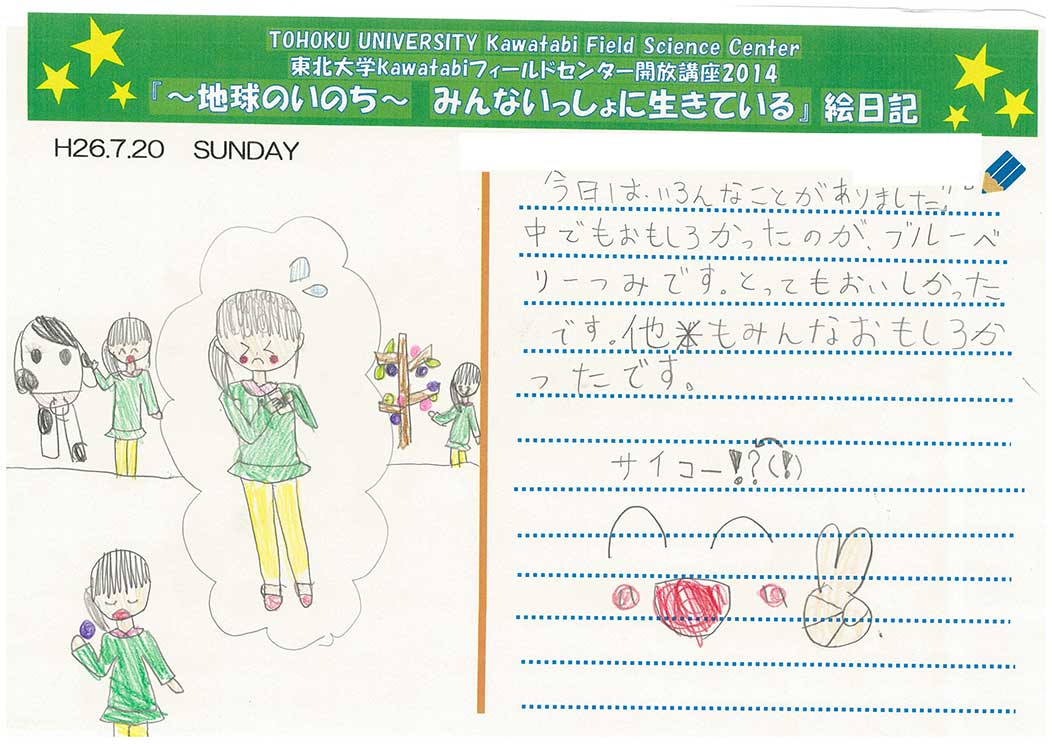 TOHOKU UNIVERSITY Kawatabi Field Science Center
東北大学Kawatabiフィールドセンター開放講座2014
『～地球のいのち～ みんないっしょに生きている』絵日記
H26.7.20 SUNDAY
今日は、いろんなことがありました。
中でもおもしろかったのが、ブルーベ
リーつみです。とってもおいしかった
です。他もみんなおもしろか
ったです。
サイコー!?(!)